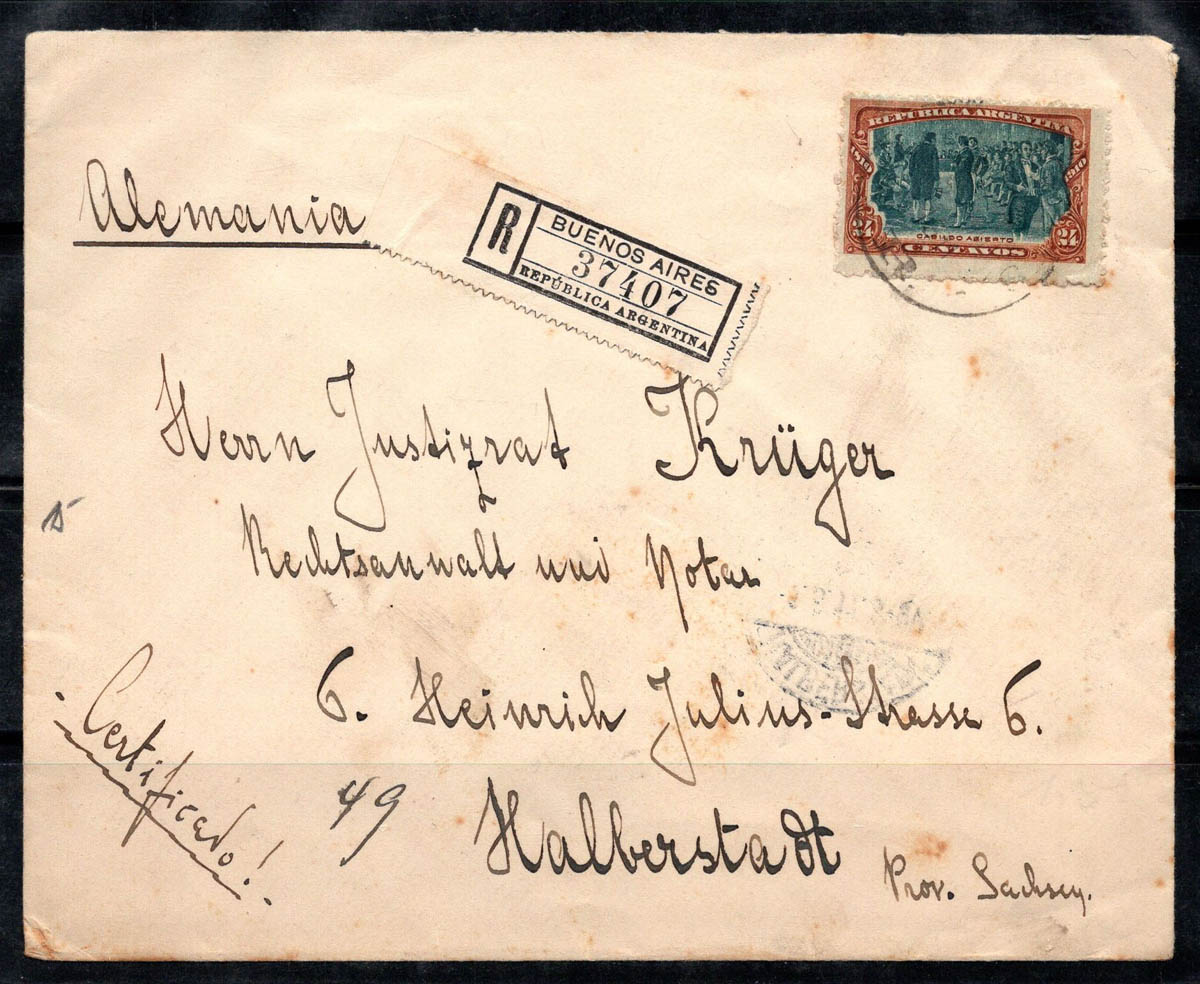 REPÚBLICA ARGENTINA
1810 1910
CABILDO ABIERTO
24 CENTAVOS 24
Alemania
R
BUENOS AIRES
37407
REPÚBLICA ARGENTINA
Herrn Justizrat Krüger
Rechtsanwalt und Notar
6. Heinrich Julius-Strasse 6.
Certificado!
49
Halberstadt
Prov. Sachsen.